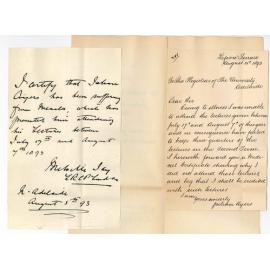 I certify that Julian
Ayers has been suffering
from Measles, which has
prevented him attending
his Lectures between
July 17th and August
7th 1893
Melville Jay
LRCP London
N. Adelaide
August 8th 93
August 10th 1893
To the Registrar of the University
Adelaide
Dear Sir
Owing to illness I was unable
to attend the lectures given between
July 17th and August 7th of August
and in consequence have failed
to keep three quarters of the
lectures in the Second Term.
I herewith forward you a Medi-
cal Certificate shewing why I
did not attend these lectures,
and beg that I shall be credited
with such lectures
I am
Yours sincerely
Julian Ayers